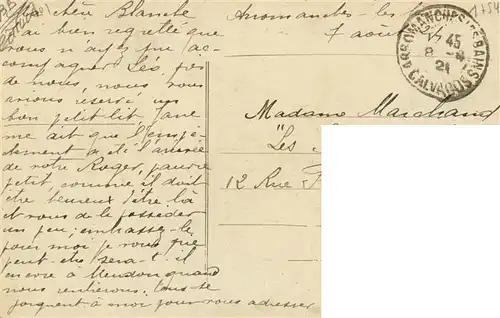 chère Blanche
ai bien regretté que
vous n'ayez pu ac-
compagner Léo, près
de nous, nous vous
avions réservé un
bon petit lit. Jane
me dit que l'empê-
chement a été l'arrivée
de votre Roger, pauvre
petit, comme il doit
être heureux d'être là
et vous de le posséder
un peu; embrassez-le
pour moi je vous prie
peut-être sera-t-il
encore à Meudon quand
nous rentrerons. Tous se
joignent à moi pour vous adresser
Arromanches-les
7 août
ARROMANCHES-LES-BAINS
45
8 -8
21
CALVADOS
Madame Marchand
"Les
12 Rue